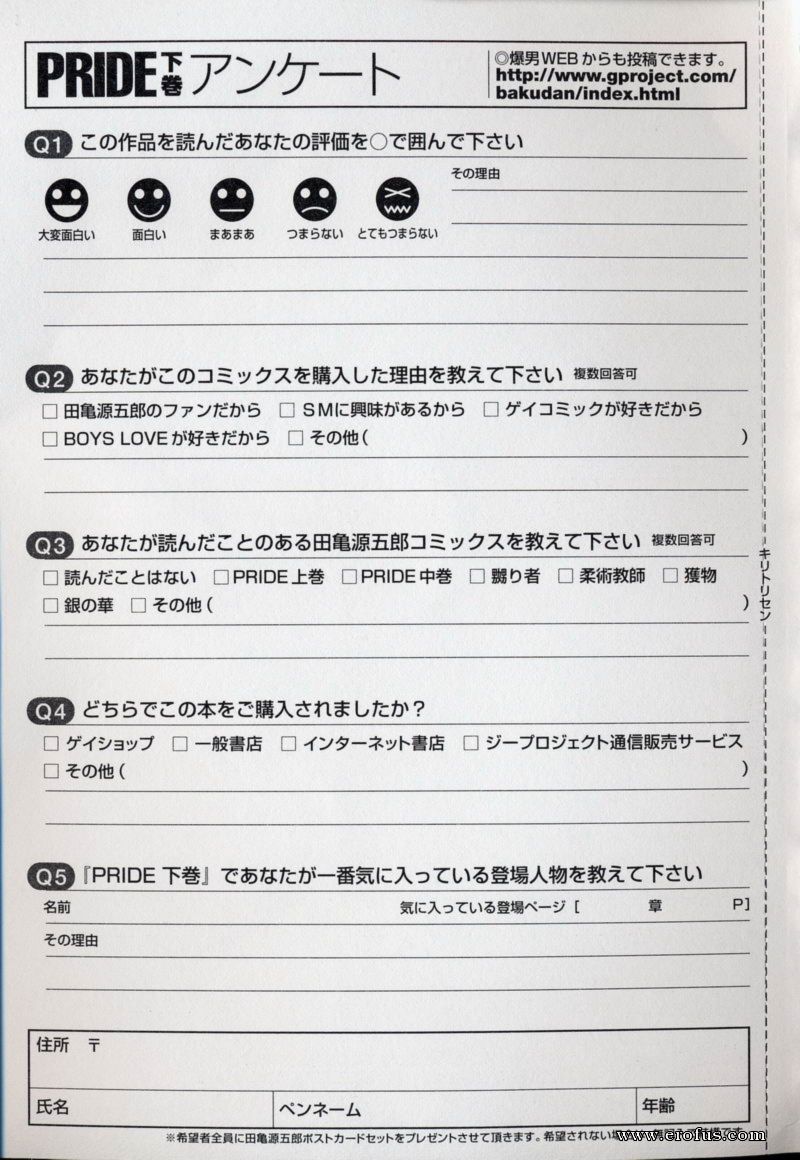 PRIDE下巻アンケート
◎爆男WEBからも投稿できます。
http://www.gproject.com/
bakudan/index.html
Q1 この作品を読んだあなたの評価を○で囲んで下さい
その理由
大変面白い 面白い まあまあ つまらない とてもつまらない
Q2 あなたがこのコミックスを購入した理由を教えて下さい 複数回答可
□ 田亀源五郎のファンだから □ SMに興味があるから □ ゲイコミックが好きだから
□ BOYS LOVEが好きだから □ その他( )
Q3 あなたが読んだことのある田亀源五郎コミックスを教えて下さい 複数回答可
□ 読んだことはない □ PRIDE上巻 □ PRIDE中巻 □ 嬲り者 □ 柔術教師 □ 獲物
□ 銀の華 □ その他( )
キリトリセン
Q4 どちらでこの本をご購入されましたか?
□ ゲイショップ □ 一般書店 □ インターネット書店 □ ジープロジェクト通信販売サービス
□ その他( )
Q5 『PRIDE 下巻』であなたが一番気に入っている登場人物を教えて下さい
名前 気に入っている登場ページ [ 章 P]
その理由
住所 〒
氏名 ペンネーム 年齢
※希望者全員に田亀源五郎ポストカードセットをプレゼントさせて頂きます。希望されない場
www.erofus.com